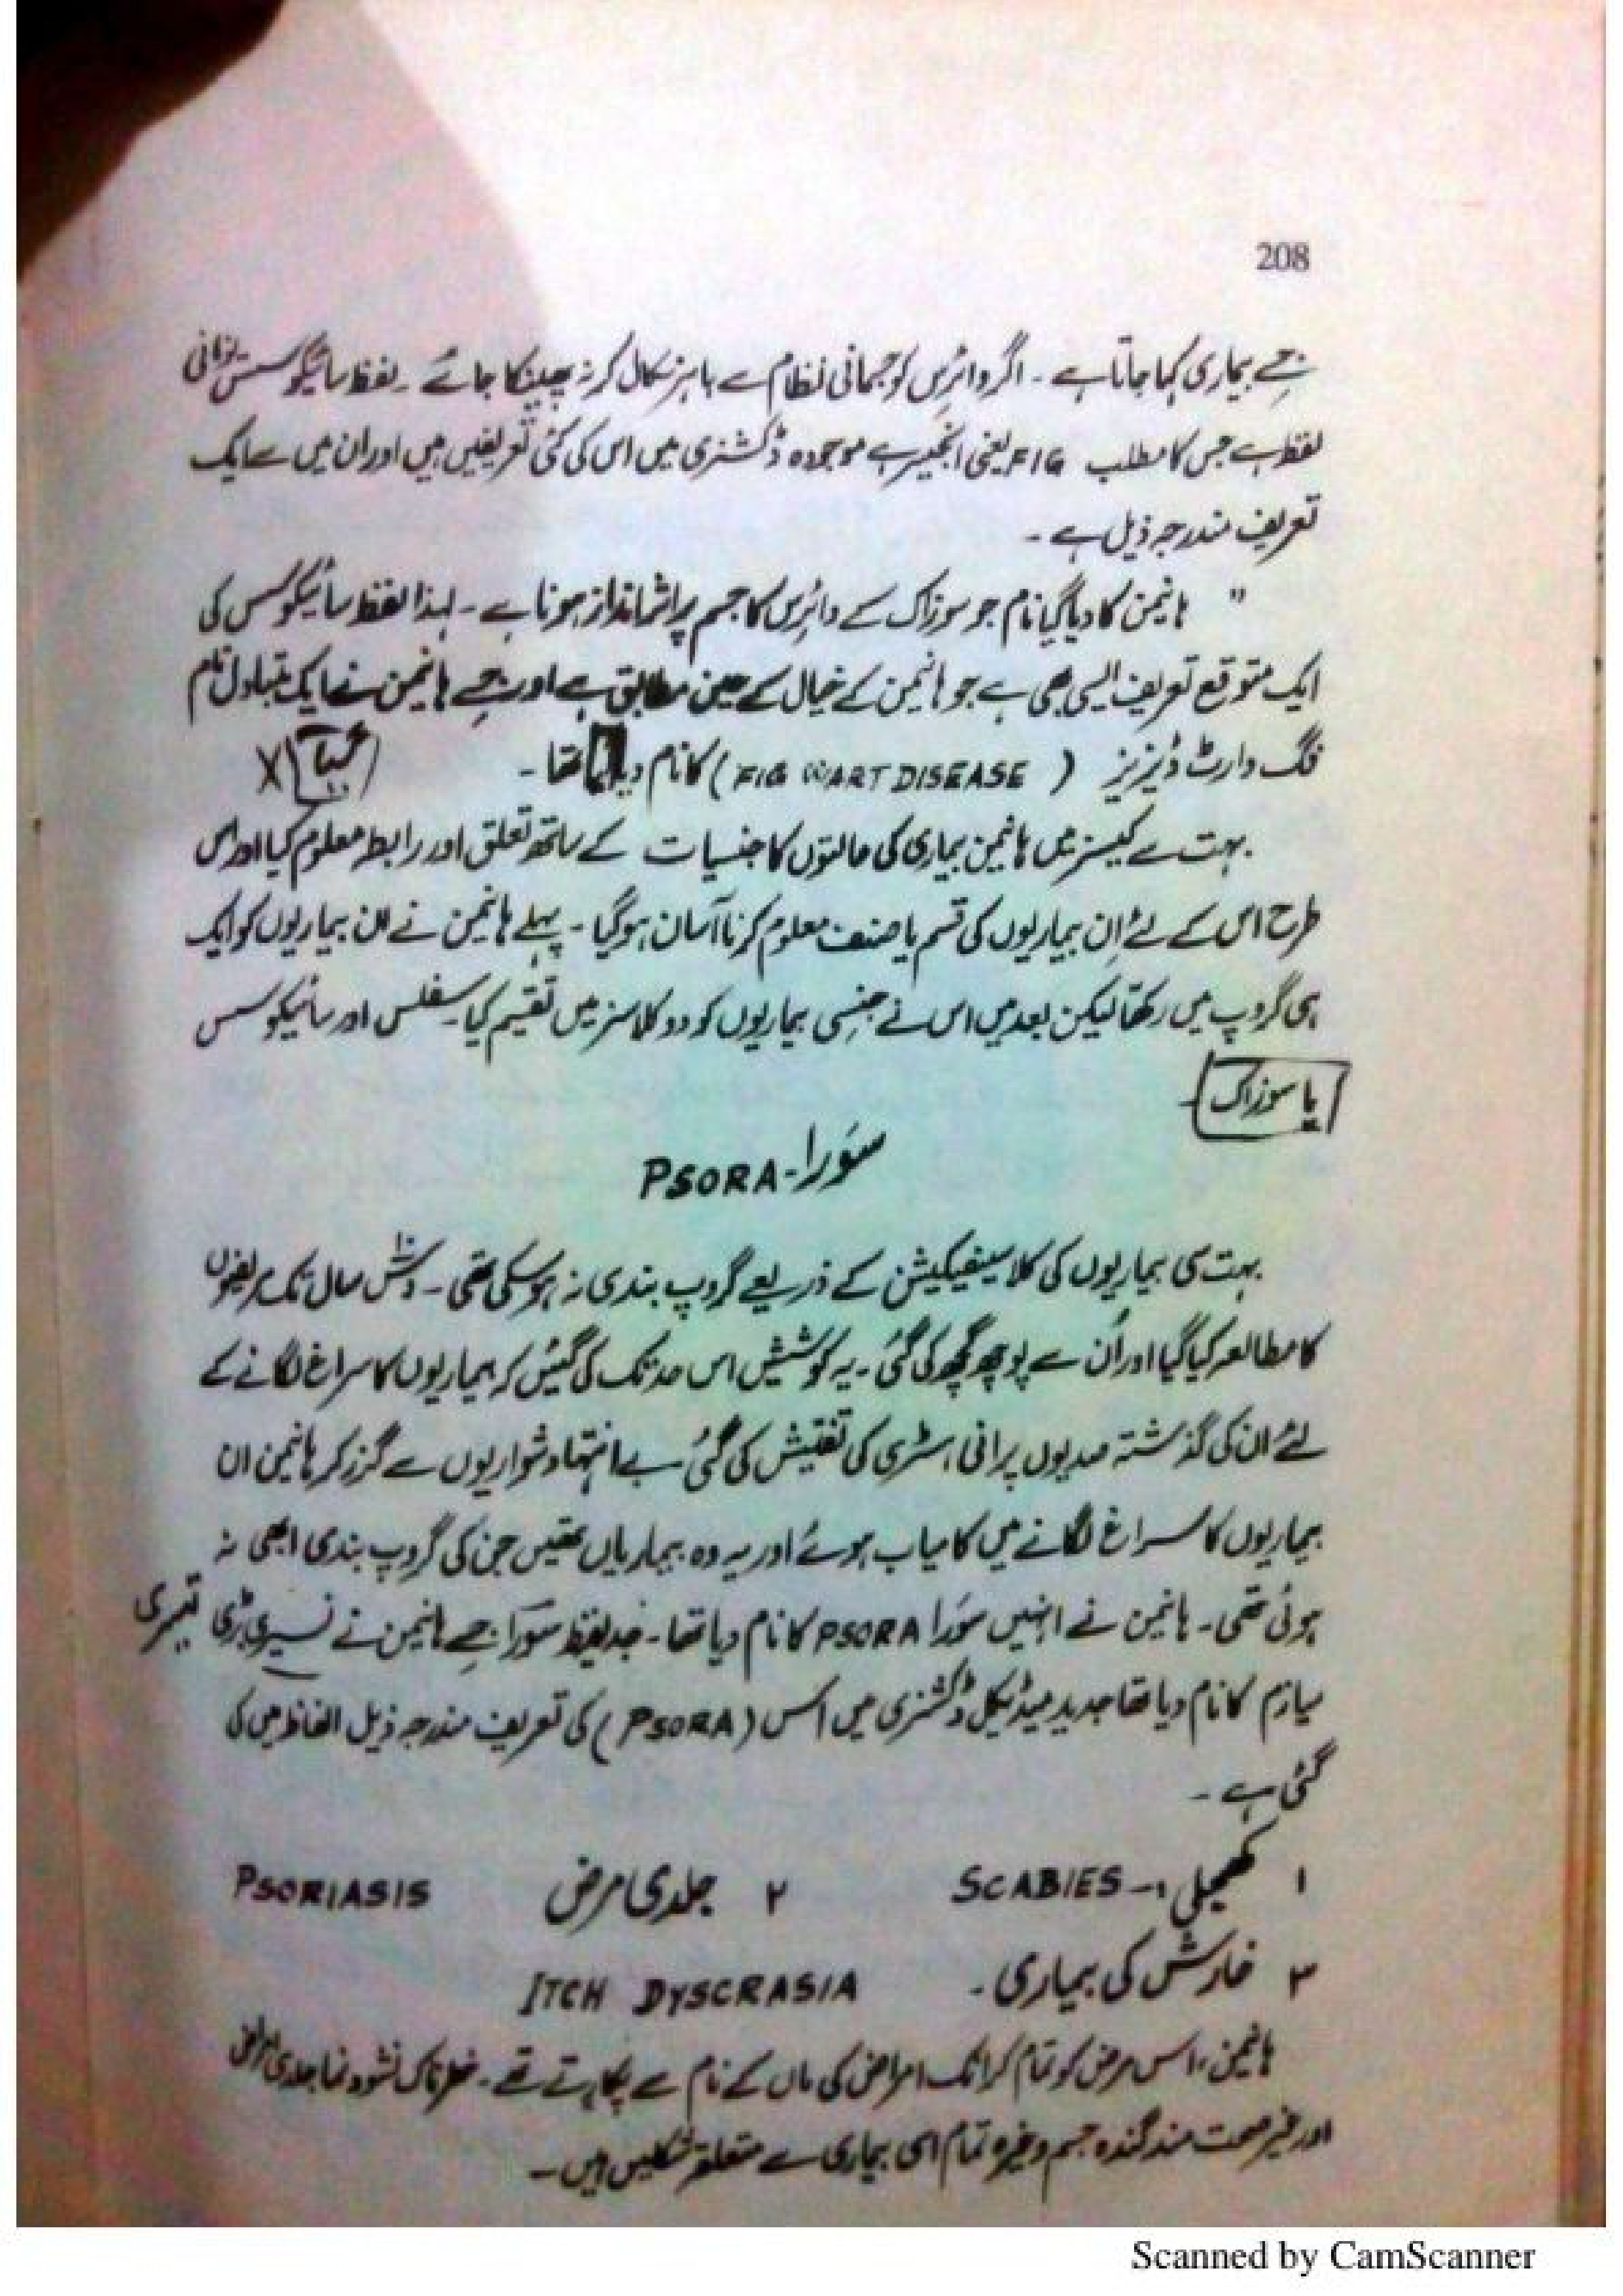 208
جسے بیماری کہا جاتا ہے ۔ اگر وائرس کو جسمانی نظام سے باہر نکال کر نہ پھینکا جائے ۔ لفظ سائیکوسس یونانی
لفظ ہے جس کا مطلب FIG یعنی انجیر ہے موجودہ ڈکشنری میں اس کی کئی تعریفیں ہیں اور ان میں سے ایک
تعریف مندرجہ ذیل ہے ۔
" ہانیمن کا دیا گیا نام جو سوزاک کے وائرس کا جسم پر اثر انداز ہونا ہے ۔ لہذا لفظ سائیکوسس کی
ایک متوقع تعریف ایسی بھی ہے جو ہانیمن کے خیال کے عین مطابق ہے اور جسے ہانیمن نے ایک متبادل نام
فگ وارٹ ڈیزیز ( FIG WART DISEASE ) کا نام دیا تھا ۔
بہت سے کیسز میں ہانیمن بیماری کی حالتوں کا جنسیات کے ساتھ تعلق اور رابطہ معلوم کیا اور اس
طرح اس کے لئے اِن بیماریوں کی قسم یا صنف معلوم کرنا آسان ہوگیا ۔ پہلے ہانیمن نے ان بیماریوں کو ایک
ہی گروپ میں رکھا لیکن بعد میں اس نے جنسی بیماریوں کو دو کلاسز میں تقسیم کیا سفلس اور سائیکوسس
یا سوزاک
سَورا - PSORA
بہت سی بیماریوں کی کلاسیفیکیشن کے ذریعے گروپ بندی نہ ہوسکی تھی ۔ دس ۱۰ سال تک مریضوں
کا مطالعہ کیا گیا اور اُن سے پوچھ گچھ کی گئی ۔ یہ کوششیں اس حد تک کی گئیں کہ بیماریوں کا سراغ لگانے کے
لئے ان کی گذشتہ صدیوں پرانی ہسٹری کی تفتیش کی گئی بے انتہا دشواریوں سے گزر کر ہانیمن ان
بیماریوں کا سراغ لگانے میں کامیاب ہوئے اور یہ وہ بیماریاں تھیں جن کی گروپ بندی ابھی نہ
ہوئی تھی ۔ ہانیمن نے انہیں سَورا PSORA کا نام دیا تھا ۔ لفظ سَورا جسے ہانیمن نے تیسری
میازم کا نام دیا تھا جدید میڈیکل ڈکشنری میں اس (PSORA) کی تعریف مندرجہ ذیل الفاظ میں کی
گئی ہے ۔
۱ کھجلی ۔ SCABIES ۲ جلدی مرض PSORIASIS
۳ خارش کی بیماری ۔ ITCH DYSCRASIA
ہانیمن ، اس مرض کو تمام کرانک امراض کی ماں کے نام سے پکارتے تھے ۔ خطرناک نشوونما جلدی امراض
اور غیر صحت مند گندہ جسم وغیرہ تمام اسی بیماری سے متعلق شکلیں ہیں ۔
Scanned by CamScanner